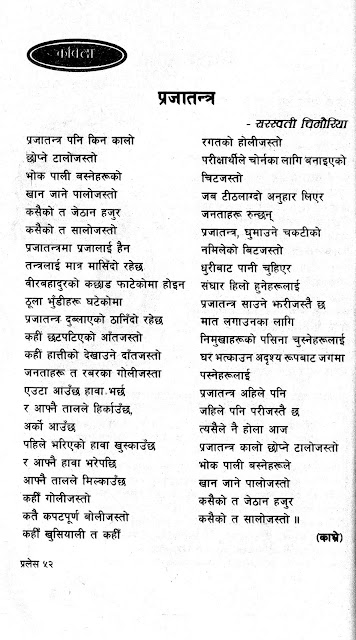 कविता
प्रजातन्त्र
- सरस्वती चिमौरिया
प्रजातन्त्र पनि किन कालो
छोप्ने टालोजस्तो
भोक पाली बस्नेहरूको
खान जाने पालोजस्तो
कसैको त जेठान हजुर
कसैको त सालोजस्तो
प्रजातन्त्रमा प्रजालाई हैन
तन्त्रलाई मात्र मासिँदो रहेछ
बीरबहादुरको कछाड फाटेकोमा होइन
ठूला भुँडीहरू घटेकोमा
प्रजातन्त्र दुब्लाएको ठानिँदो रहेछ
कहीं छटपटिएको आँतजस्तो
कहीं हात्तीको देखाउने दाँतजस्तो
जनताहरू त रबरका गोलीजस्ता
एउटा आउँछ हावा भर्छ
र आफ्नै तालले हिर्काउँछ,
अर्को आउँछ
पहिले भरिएको हावा खुस्काउँछ
र आफ्नै हावा भरेपछि
आफ्नै तालले मिल्काउँछ
कहीं गोलीजस्तो
कतै कपटपूर्ण बोलीजस्तो
कहीं खुसियाली त कहीं
रगतको होलीजस्तो
परीक्षार्थीले चोर्नका लागि बनाइएको
चिटजस्तो
जब टीठलाग्दो अनुहार लिएर
जनताहरू रुन्छन्
प्रजातन्त्र, घुमाउने चकटीको
नमिलेको बिटजस्तो
धुरीबाट पानी चुहिएर
संघार हिलो हुनेहरूलाई
प्रजातन्त्र साउने झरीजस्तै छ
मात लगाउनका लागि
निमुखाहरूको पसिना चुस्नेहरूलाई
घर भत्काउन अदृश्य रूपबाट जगमा
पस्नेहरूलाई
प्रजातन्त्र अहिले पनि
जहिले पनि परीजस्तै छ
त्यसैले नै होला आज
प्रजातन्त्र कालो छोप्ने टालोजस्तो
भोक पाली बस्नेहरूले
खान जाने पालोजस्तो
कसैको त जेठान हजुर
कसैको त सालोजस्तो ॥
(काभ्रे)
प्रलेस ५२